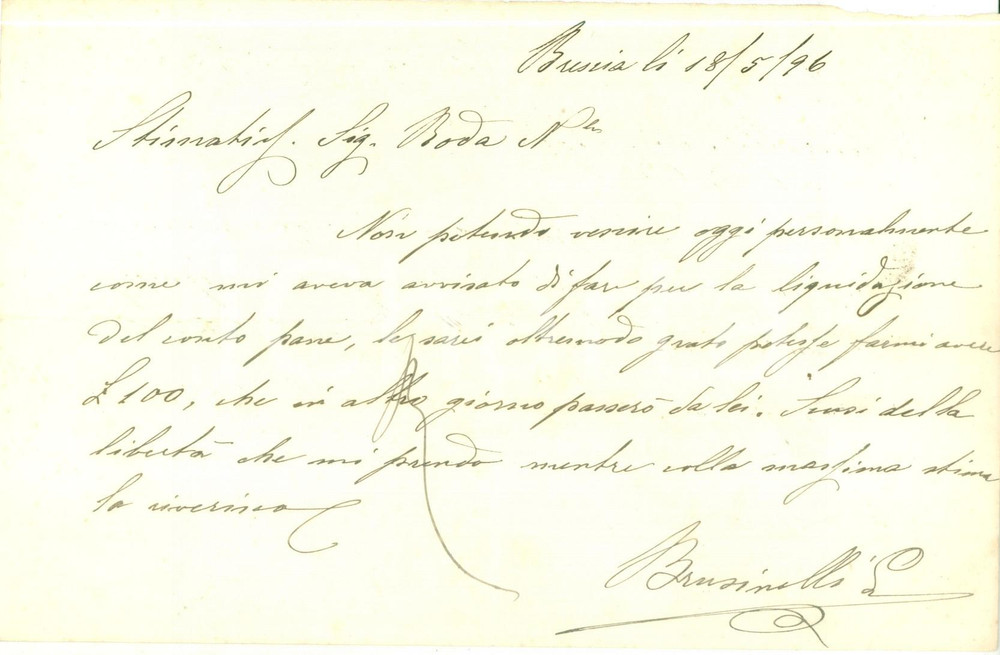 Brescia li 18/5/96
Stimatiss. Sig. Boda N
Non potendo venire oggi personalmente
come mi aveva avvisato di fare per la liquidazione
del conto pane, le sarei oltremodo grato potesse farmi avere
£ 100, che in altro giorno passerò da lei. Scusi della
libertà che mi prendo mentre colla massima stima
la riverisco
Brusinelli L